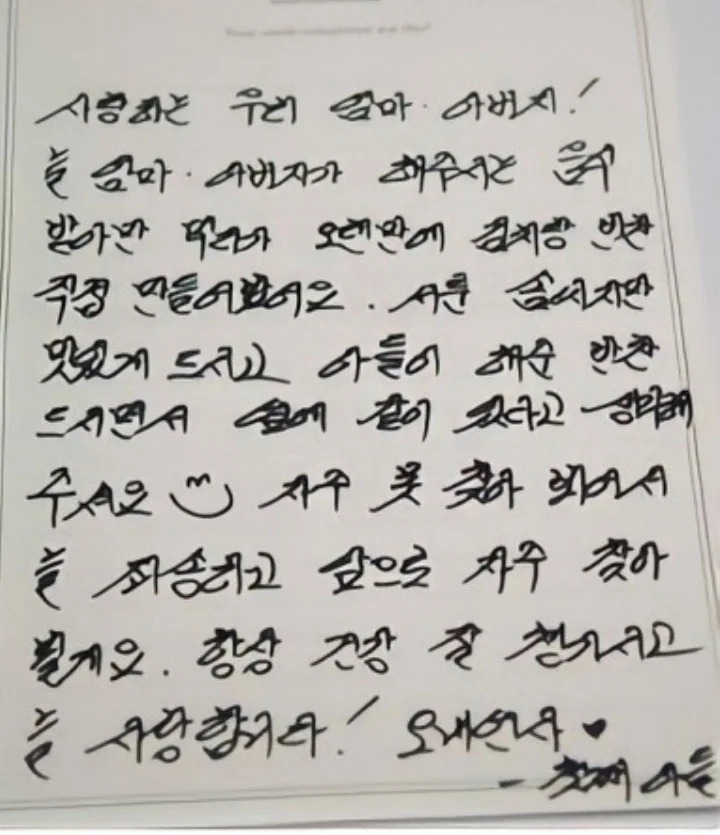 사랑하는 우리 엄마·아버지!
늘 엄마·아버지가 해주시는 음식
받아만 먹다가 오랜만에 김치랑 반찬
직접 만들어봤어요. 서툰 솜씨지만
맛있게 드시고 아들이 해준 반찬
드시면서 옆에 같이 있다고 생각해
주세요 자주 못 찾아 봬어서
늘 죄송하고 앞으로 자주 찾아
뵐게요. 항상 건강 잘 챙기시고
늘 사랑합니다! 오래산사 ♥
- 첫째 아들